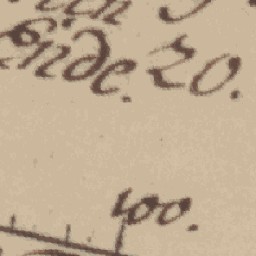 Ende. 20.
100.